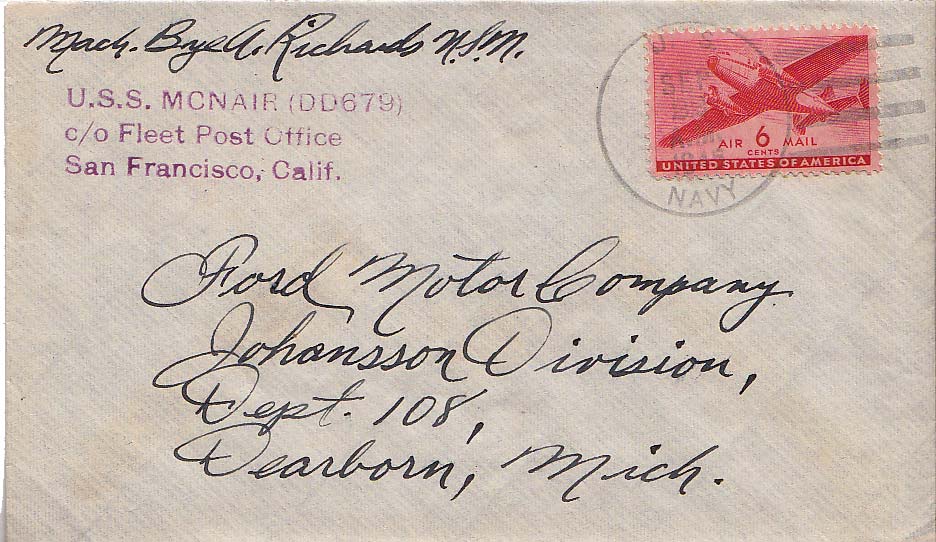 Mach. Bye A. Richards U.S.N.
U.S.S. MCNAIR (DD679)
c/o Fleet Post Office
San Francisco, Calif.
U. S.
SEP
NAVY
AIR 6 MAIL
CENTS
UNITED STATES OF AMERICA
Ford Motor Company
Johansson Division,
Dept. 108,
Dearborn, Mich.